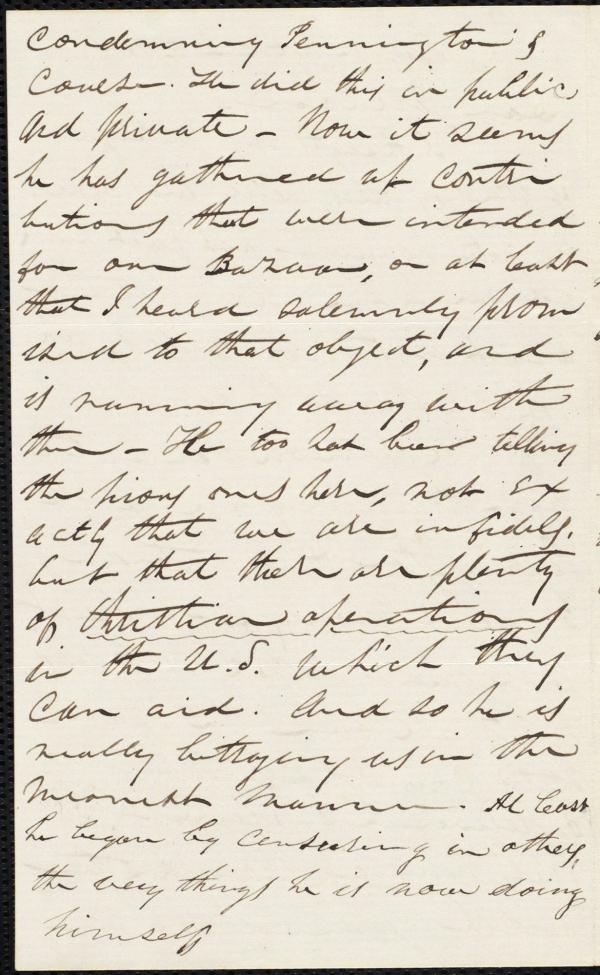 condemning Pennington's
course. He did this in public
and private – Now it seems
he has gathered up contri
butions that were intended
for our Bazaar, or at least
that I heard solemnly prom
ised to that object, and
is running away with
them – He too has been telling
the pious ones here, not ex
actly that we are infidels,
but that there are plenty
of Christian operations
in the U.S. which they
can aid. And so he is
really betraying us in the
meanest manner. At least
he began by censuring in others,
the very things he is now doing
himself